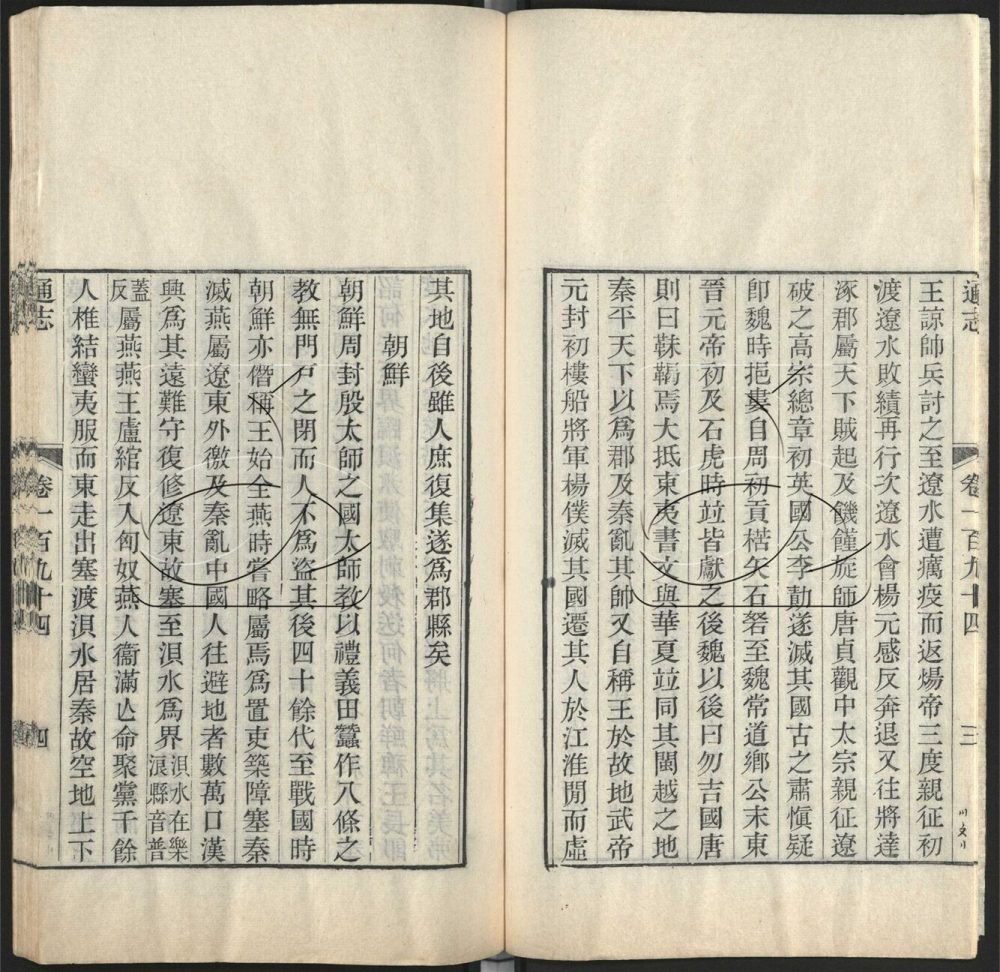 通志
卷一百九十四
三
王諒帥兵討之至遼水遭癘疫而返煬帝三度親征初
渡遼水敗績再行次遼水會楊元感反奔退又往將達
涿郡屬天下賊起及饑饉旋師唐貞觀中太宗親征遼
破之高宗總章初英國公李勣遂滅其國古之肅愼疑
卽魏時挹婁自周初貢楛矢石砮至魏常道鄉公末東
晉元帝初及石虎時竝皆獻之後魏以後曰勿吉國唐
則曰靺鞨焉大抵東夷書文與華夏竝同其閩越之地
秦平天下以爲郡及秦亂其帥又自稱王於故地武帝
元封初樓船將軍楊僕滅其國遷其人於江淮閒而虛
其地自後雖人庶復集遂爲郡縣矣
朝鮮
朝鮮周封殷太師之國太師教以禮義田蠶作八條之
教無門戶之閉而人不爲盜其後四十餘代至戰國時
朝鮮亦僭稱王始全燕時嘗略屬焉爲置吏築障塞秦
滅燕屬遼東外徼及秦亂中國人往避地者數萬口漢
興爲其遠難守復修遼東故塞至浿水爲界浿水在樂
浪縣音普
蓋
反屬燕燕王盧綰反入匈奴燕人衞滿亾命聚黨千餘
人椎結蠻夷服而東走出塞渡浿水居秦故空地上下
通志
卷一百九十四
四